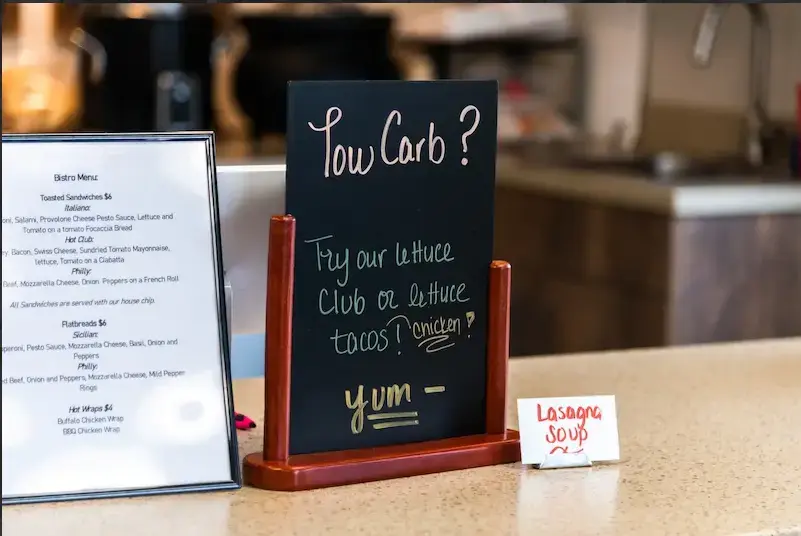 Bistro Menu:
Toasted Sandwiches $6
Italiano:
Salami, Provolone Cheese Pesto Sauce, Lettuce and
Tomato on a tomato Focaccia Bread
Hot Club:
Bacon, Swiss Cheese, Sundried Tomato Mayonnaise,
lettuce, Tomato on a Ciabatta
Philly:
Beef, Mozzarella Cheese, Onion, Peppers on a French Roll
All Sandwiches are served with our house chip.
Flatbreads $6
Sicilian:
Pesto Sauce, Mozzarella Cheese, Basil, Onion and
Peppers
Philly:
Beef, Onion and Peppers, Mozzarella Cheese, Mild Pepper
Rings
Hot Wraps $4
Buffalo Chicken Wrap
BBQ Chicken Wrap
Low Carb?
Try our lettuce
Club or lettuce
tacos! (chicken!
yum –
Lasagna
Soup